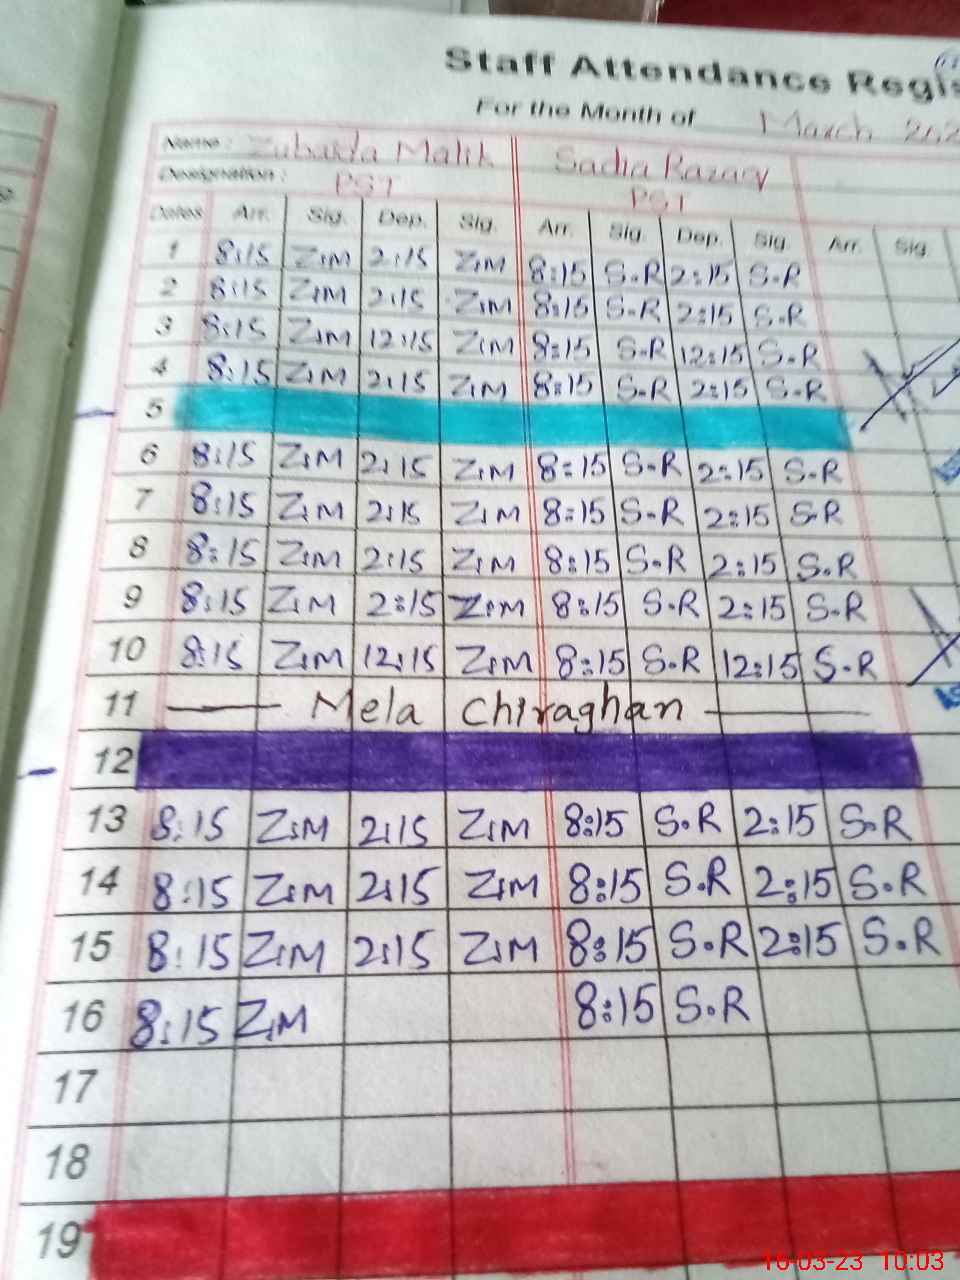 Staff Attendance Regis
For the Month of March 202
Name: Zubaida Malik Sadia Razaq
Designation: PST PST
Dates Arr. Sig. Dep. Sig. Arr. Sig. Dep. Sig. Arr. Sig.
1 8:15 Z.M 2:15 Z.M 8:15 S.R 2:15 S.R
2 8:15 Z.M 2:15 Z.M 8:15 S.R 2:15 S.R
3 8:15 Z.M 12:15 Z.M 8:15 S.R 12:15 S.R
4 8:15 Z.M 2:15 Z.M 8:15 S.R 2:15 S.R
5
6 8:15 Z.M 2:15 Z.M 8:15 S.R 2:15 S.R
7 8:15 Z.M 2:15 Z.M 8:15 S.R 2:15 S.R
8 8:15 Z.M 2:15 Z.M 8:15 S.R 2:15 S.R
9 8:15 Z.M 2:15 Z.M 8:15 S.R 2:15 S.R
10 8:15 Z.M 12:15 Z.M 8:15 S.R 12:15 S.R
11 Mela Chiraghan
12
13 8:15 Z.M 2:15 Z.M 8:15 S.R 2:15 S.R
14 8:15 Z.M 2:15 Z.M 8:15 S.R 2:15 S.R
15 8:15 Z.M 2:15 Z.M 8:15 S.R 2:15 S.R
16 8:15 Z.M 8:15 S.R
17
18
19
16-03-23 10:03